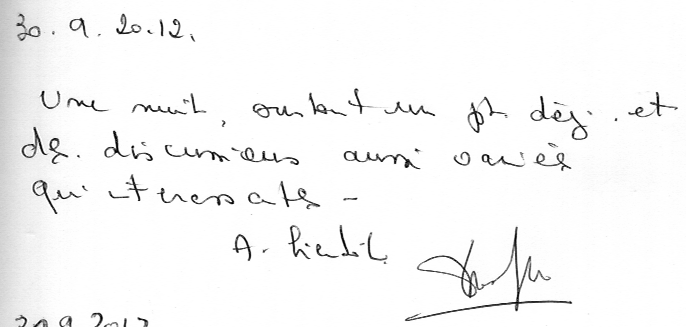 30.9.2012.
Une nuit, surtout un pt déj. et
des discussions aussi variés
qu'interessants -
A bientôt
30.9.2012